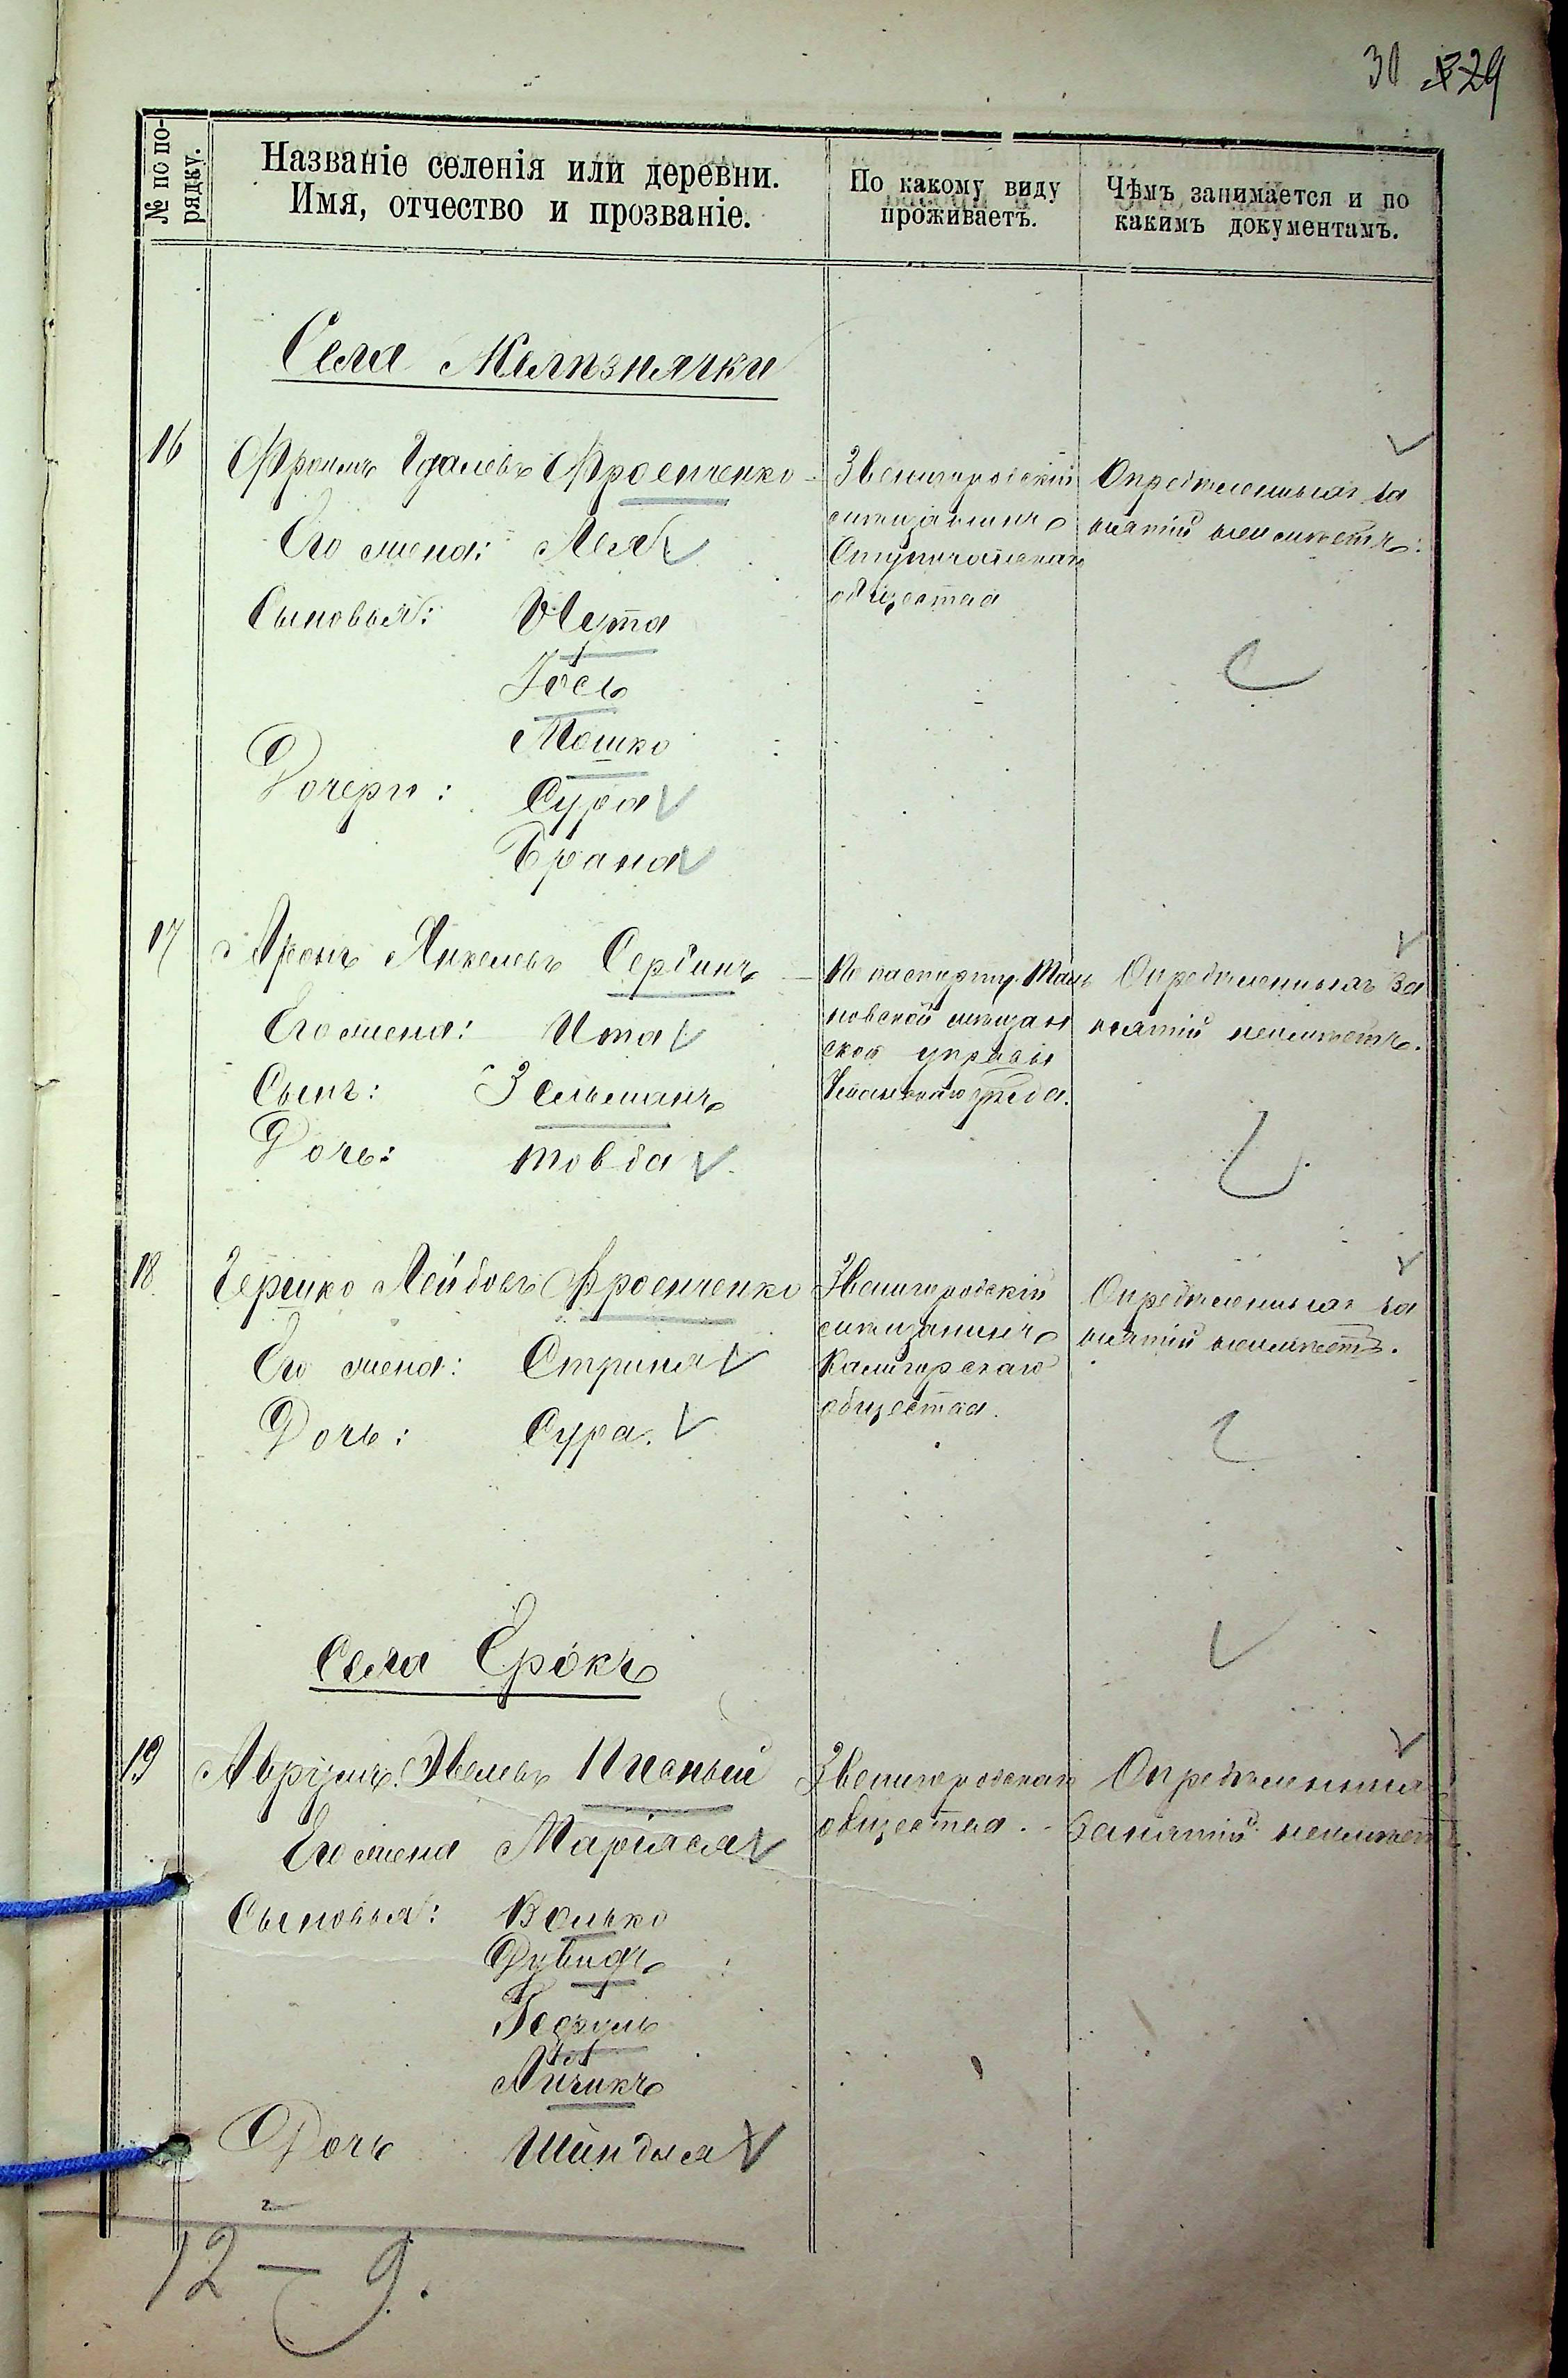 30 29
№ по по-
рядку.
Названіе селенія или деревни.
Имя, отчество и прозваніе.
По какому виду
проживаетъ.
Чѣмъ занимается и по
какимъ документамъ.
Села
16
Фроимъ Гдалевъ Фроенченко
Его жена: Лея
Сыновья: Иута
Іось
Мошко
Дочери: Сура
Брана
Звенигородскій
мѣщанинъ
общества
Опредѣленныхъ за
нятій неимѣетъ.
17
Аронъ Янкелевъ Сердинъ
Его жена: Ита
Сынъ: Зельманъ
Дочь: Товба
По паспорту Таль
новской мѣщан
ской управы
Уманскаго уѣзда.
Опредѣленныхъ за
нятій неимѣетъ.
18
Гершко Лейбовъ Фроенченко
Его жена: Стриня
Дочь: Сура.
Звенигородскій
мѣщанинъ
Калигорскаго
общества.
Опредѣленныхъ за
нятій неимѣетъ.
Села Ерокъ
19
Аврумъ Эвелевъ Писный
Его жена Маріяся
Сыновья: Волько
Дувидъ
Ичикъ
Дочь Шиндля
Звенигородскаго
общества.
Опредѣленныхъ
занятій неимѣет
12 — 9.